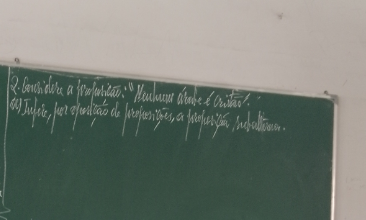 2. Considere a proposição: "Nenhum árabe é cristão".
a) Infere, por oposição de proposições, a proposição subalterna.